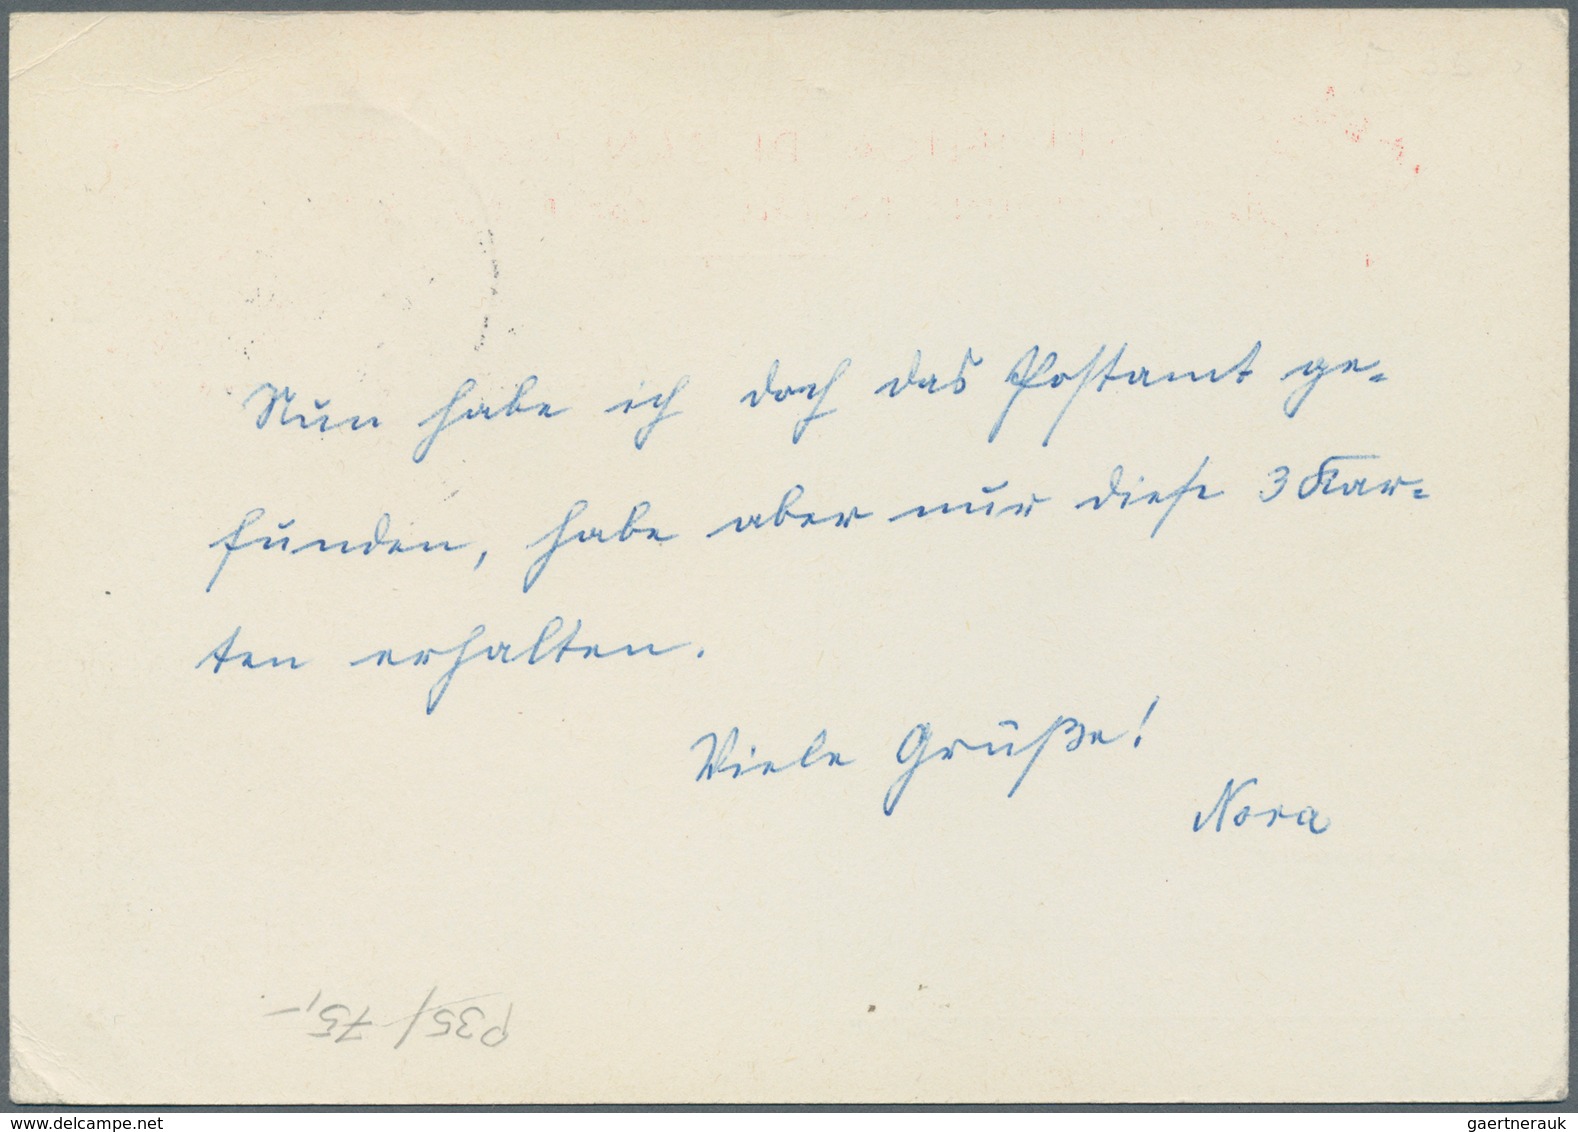 Nun habe ich doch das Postamt ge-
funden, habe aber nur diese 3 Kar-
ten erhalten.
Viele Grüße!
Nora
P35/75,-
delcampe.net
gaertnerauk